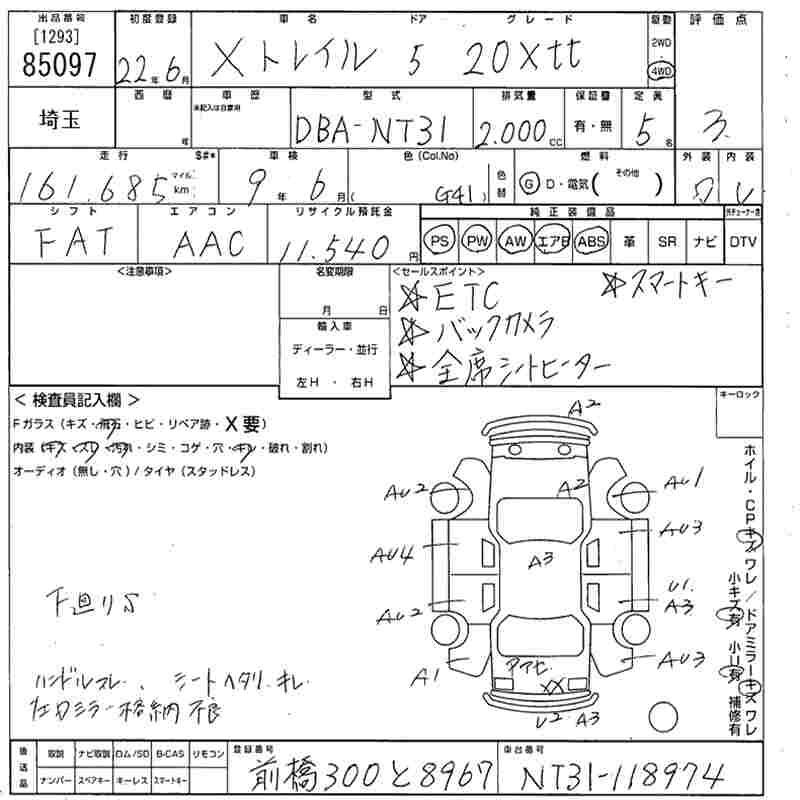 出品番号 [1293] 85097
初度登録 22年6月
車名 Xトレイル
ドア 5
グレード 20Xtt
駆動 2WD 4WD
評価点 3
埼玉
西暦 年
車歴 未記入は自家用
型式 DBA-NT31
排気量 2.000cc
保証書 有・無
定員 5名
走行 161.685 マイル km S#*
車検 9年6月
色(Col.No) (G41)
色替
燃料 G D・電気( その他 )
外装
内装
シフト FAT
エアコン AAC
リサイクル預託金 11.540円
純正装備品
PS PW AW エアB ABS 革 SR ナビ DTV
<注意事項>
名変期限 月 日
輸入車
ディーラー・並行
左H・右H
<セールスポイント>
☆ETC ☆スマートキー
☆バックカメラ
☆全席シートヒーター
<検査員記入欄>
Fガラス(キズ・飛石・ヒビ・リペア跡・X要)
内装(キズ・スレ・汚れ・シミ・コゲ・穴・キレ・破れ・割れ)
オーディオ(無し・穴)/タイヤ(スタッドレス)
キーロック
A2
AU2 A2 AU1
AU3
AU4 A3
U1.
AU2 A3
A1 アマセ AU3
XX
U2 A3
ホイル・CPキズワレ/ドアミラーキズワレ
小キズ有 小U有 補修有
下廻りS
ハンドルスレ、シートヘタリ.キレ
左ドアミラー格納不良
後送品
取説 ナビ取説 ロム/SD B-CAS リモコン
ナンバー スペアキー キーレス スマートキー
登録番号 前橋300と8967
車台番号 NT31-118974